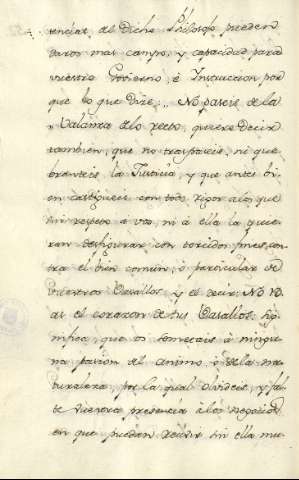 tencias, de Dicho Philosofo pueden
daros mas campo, y capacidad para
vuestro Govierno, è Instruccion por
que lo que Dize,, No paseis de la
,, Valanza elo recto, quiere Decir
tambien, que no traspaseis, ni que
branteis la Justicia, y que antes bi
en castigueis con todo rigor a los que
sin respeto a vos, ni à ella la quie
ran desfigurar con torcidos fines, con
tra el bien comun, ò particular de
vuestros Vasallos, y el decir: No
as el corazon de tus Vasallos, sig
nifica, que os someteis à ningu
na pasion del animo, ò de la na
turaleza, por la qual olvideis, y fal
te vuestra presencia à los negocios
en que pueden recivir sin ella mu